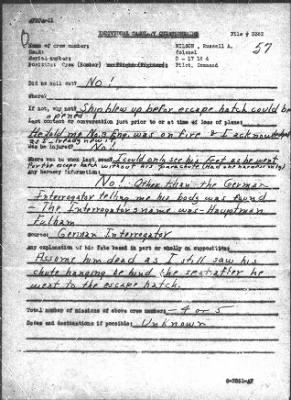 INDIVIDUAL CASUALTY QUESTIONNAIRE
File # 2362
57
Name of crew member: WILSON, Russell A.
Rank: Colonel
Serial number: O - 17 18 4
Position: Crew (Bomber) Pilot, Command
Did he bail out? No!
Where?
If not, why not? Ship blew up before escape hatch could be
opened!
Last contact or conversation just prior to or at time of loss of plane:
He told me No. 3 Eng. was on fire & I acknowledged
as I already knew it.
Was he injured? No!
Where was he when last seen? I could only see his feet as he went
for the escape hatch without his parachute (Had one harness only)
Any hearsay information:
No! Other than the German
Interrogator telling me his body was found
The Interrogators name was - Hauptman
Fulham
Source: German Interrogator
Any explanation of his fate based in part or wholly on supposition:
Assume him dead as I still saw his
chute hanging behind the seat after he
went to the escape hatch.
Total number of missions of above crew member: - 4 or 5
Dates and destinations if possible: Unknown
6-3861-AF